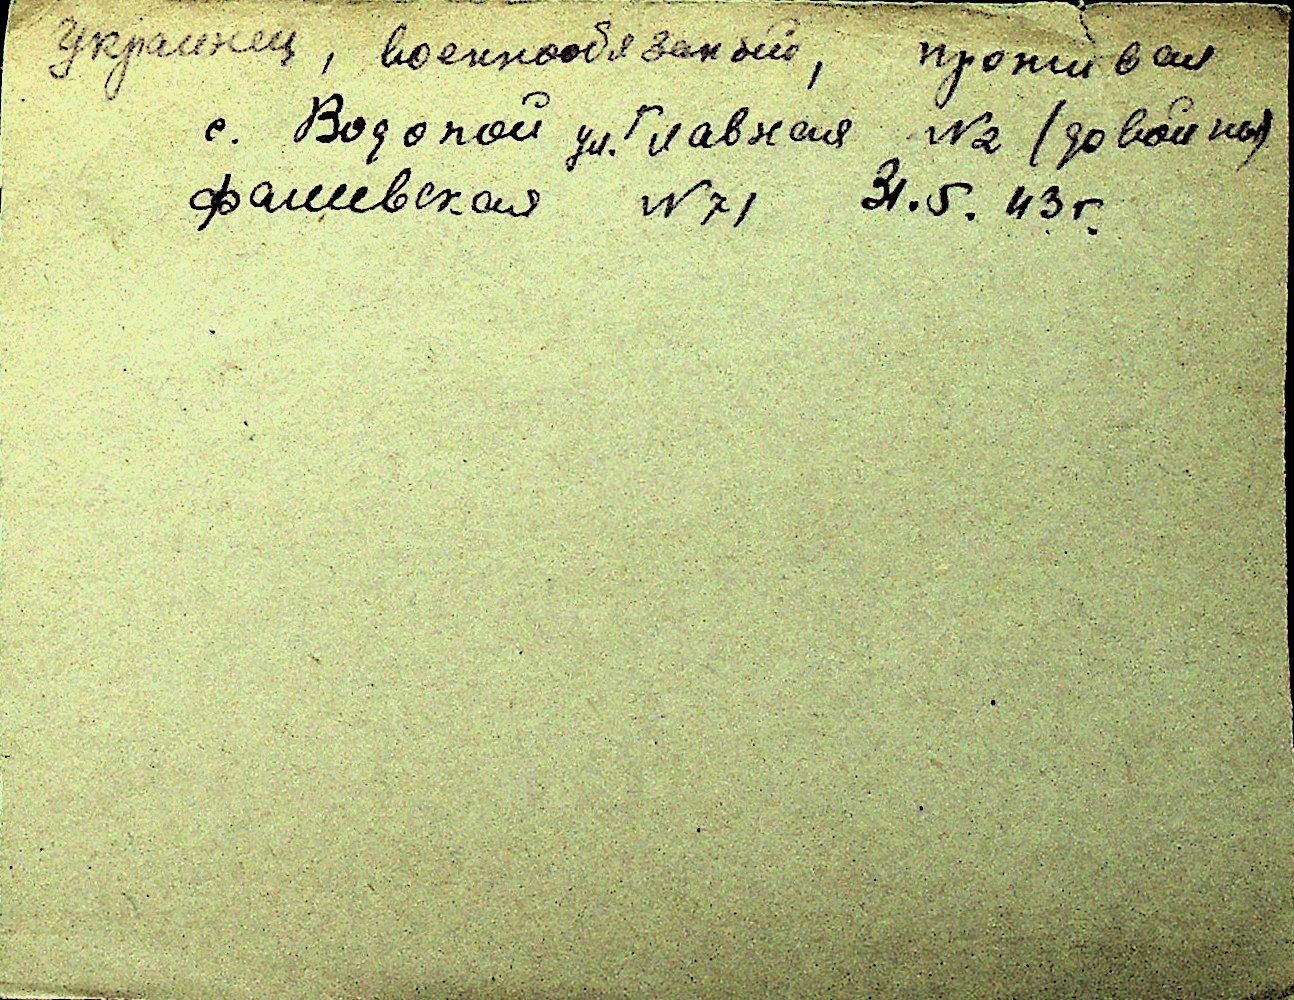 Украинец, военнообязаный, проживал
с. Водопой ул. Главная №2 (до войны)
фалиевская №71 31.5.43г.